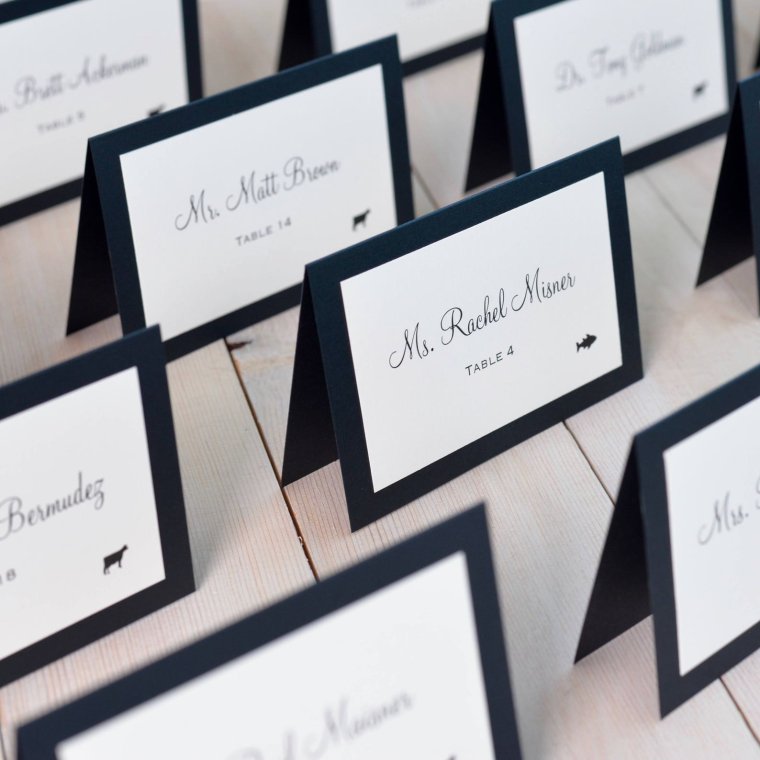 Brett Ackerman
TABLE
Dr. Tony Goldman
TABLE 7
Mr. Matt Brown
TABLE 14
Ms. Rachel Misner
TABLE 4
Bermudez
8
Mrs.
Misner